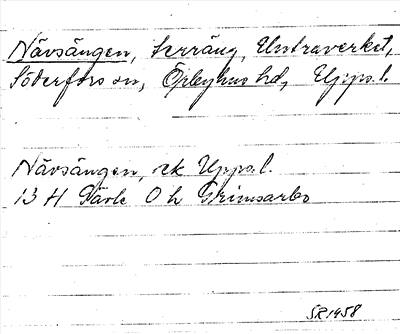 Nävsängen, terräng, Untraverket,
Söderfors sn, Örbyhus hd, Upps. l.
Nävsängen, ek Upps. l.
13 H Gävle 0 h Grimsarbo
SR 1958